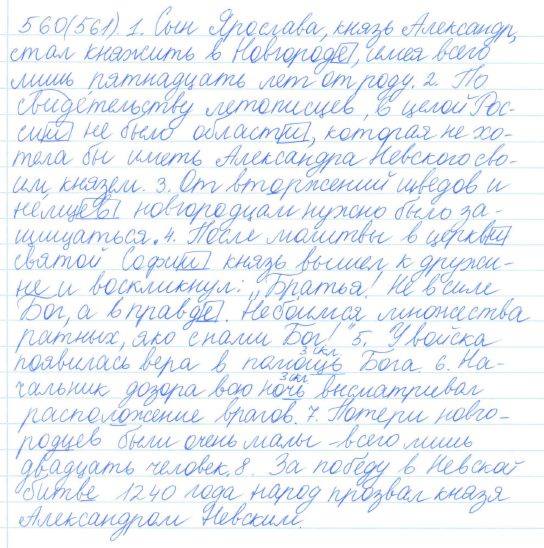 560(561) 1. Сын Ярослава, князь Александр,
стал княжить в Новгороде, имея всего
лишь пятнадцать лет от роду. 2. По
свидетельству летописцев, в целой Рос-
сии не было области, которая не хо-
тела бы иметь Александра Невского сво-
им князем. 3. От вторжений шведов и
немцев новгородцам нужно было за-
щищаться. 4. После молитвы в церкви
святой Софии князь вышел к дружи-
не и воскликнул: „Братья! Не в силе
Бог, а в правде. Не боимся множества
ратных, яко с нами Бог!" 5. У войска
появилась вера в помощь 3 скл. Бога. 6. На-
чальник дозора всю ночь 3 скл. высматривал
расположение врагов. 7. Потери новго-
родцев были очень малы – всего лишь
двадцать человек. 8. За победу в Невской
битве 1240 года народ прозвал князя
Александром Невским.